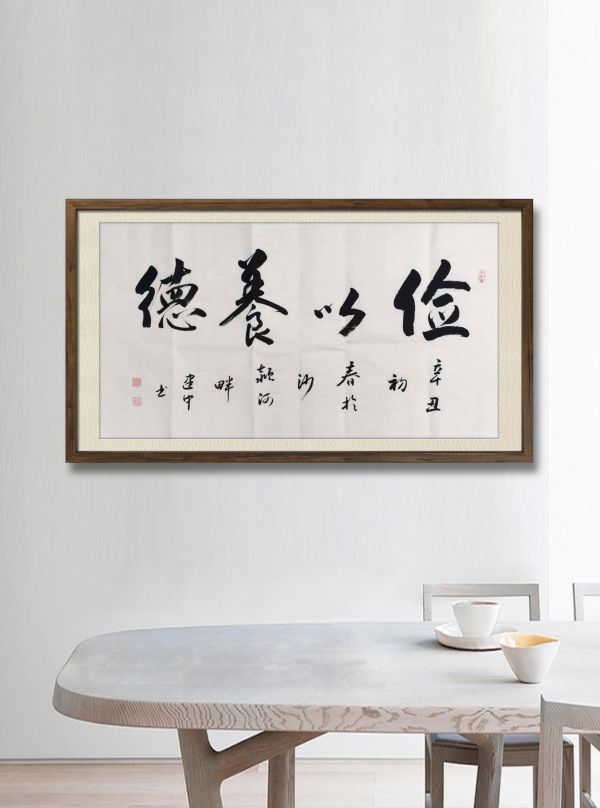 俭以養德
辛丑初春於沙颍河畔建中书